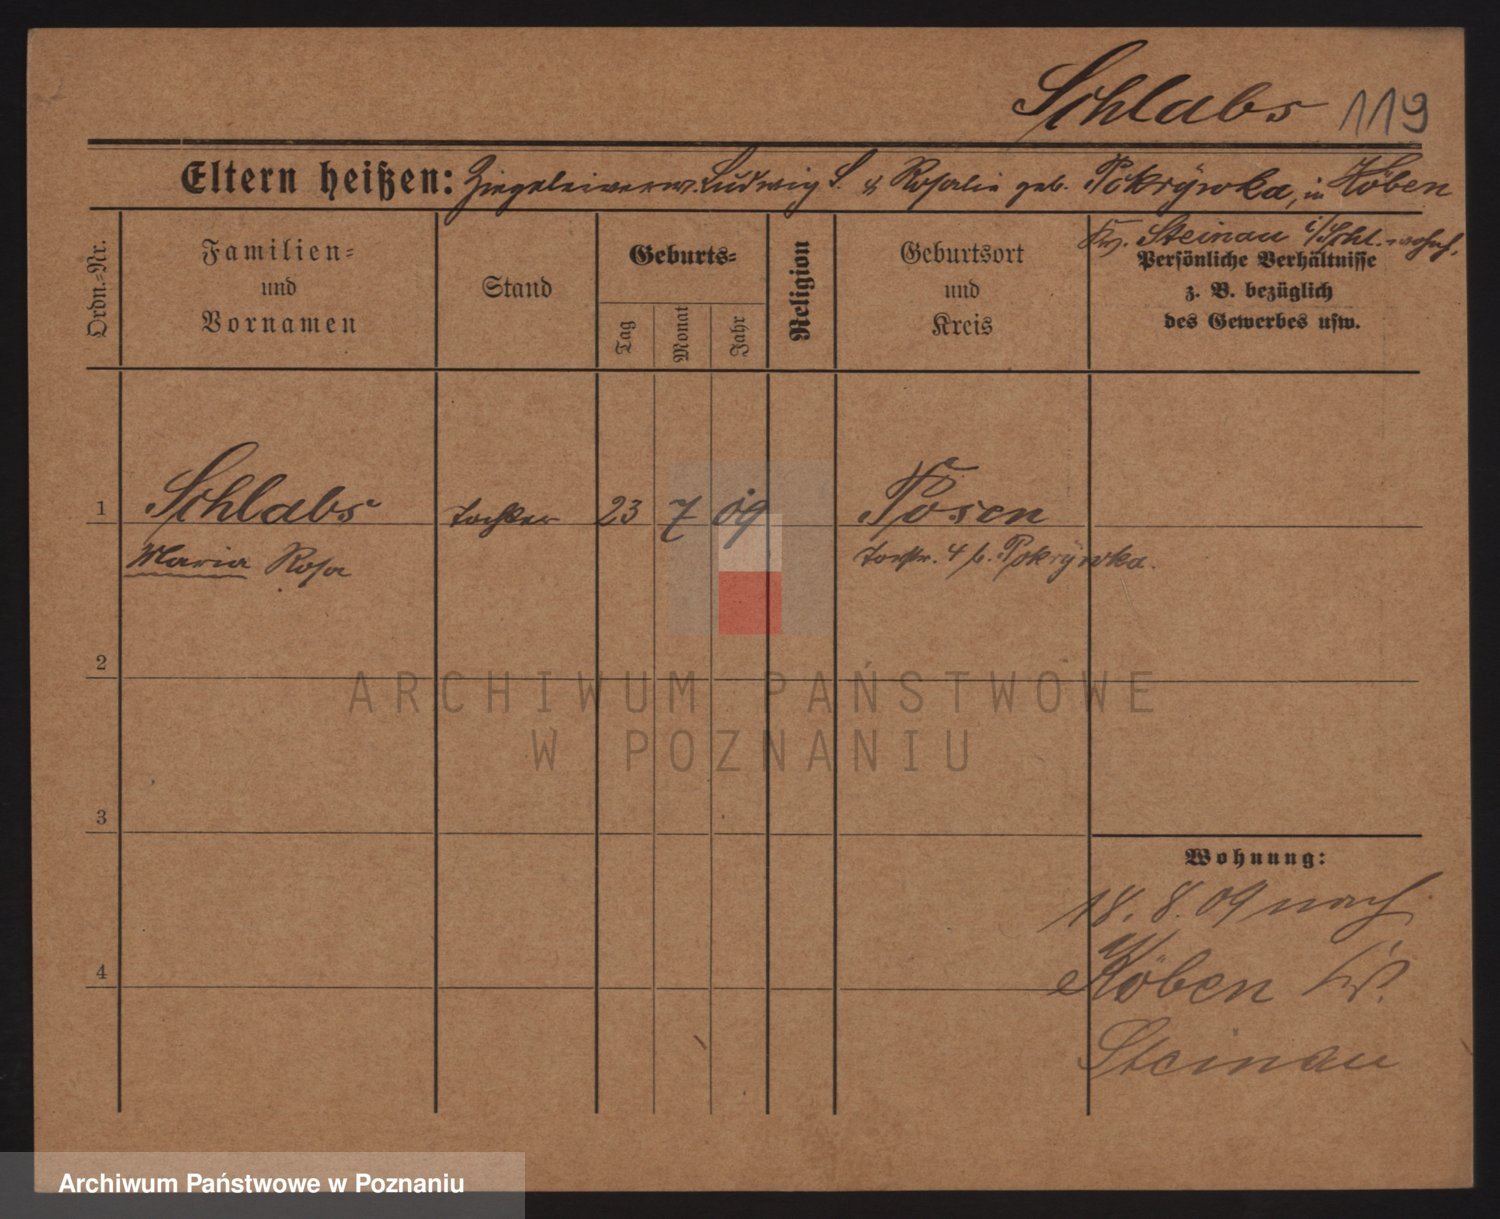 Schlabs 119
Eltern heißen: Ziegeleiverw. Ludwig S. & Rosalie geb. Pokrÿwka, in Köben
Krs. Steinau i/Schl. wohnh.
Ordn.-Nr.
Familien-
und
Vornamen
Stand
Geburts-
Tag
Monat
Jahr
Religion
Geburtsort
und
Kreis
Persönliche Verhältnisse
z. B. bezüglich
des Gewerbes usw.
1 Schlabs Tochter 23 7 09 Posen
Maria Rosa Torstr. 4 b. Pokrÿwka.
2
ARCHIWUM PAŃSTWOWE
W POZNANIU
3
Wohnung:
18. 8. 09 nach
4 Köben
Steinau
Archiwum Państwowe w Poznaniu